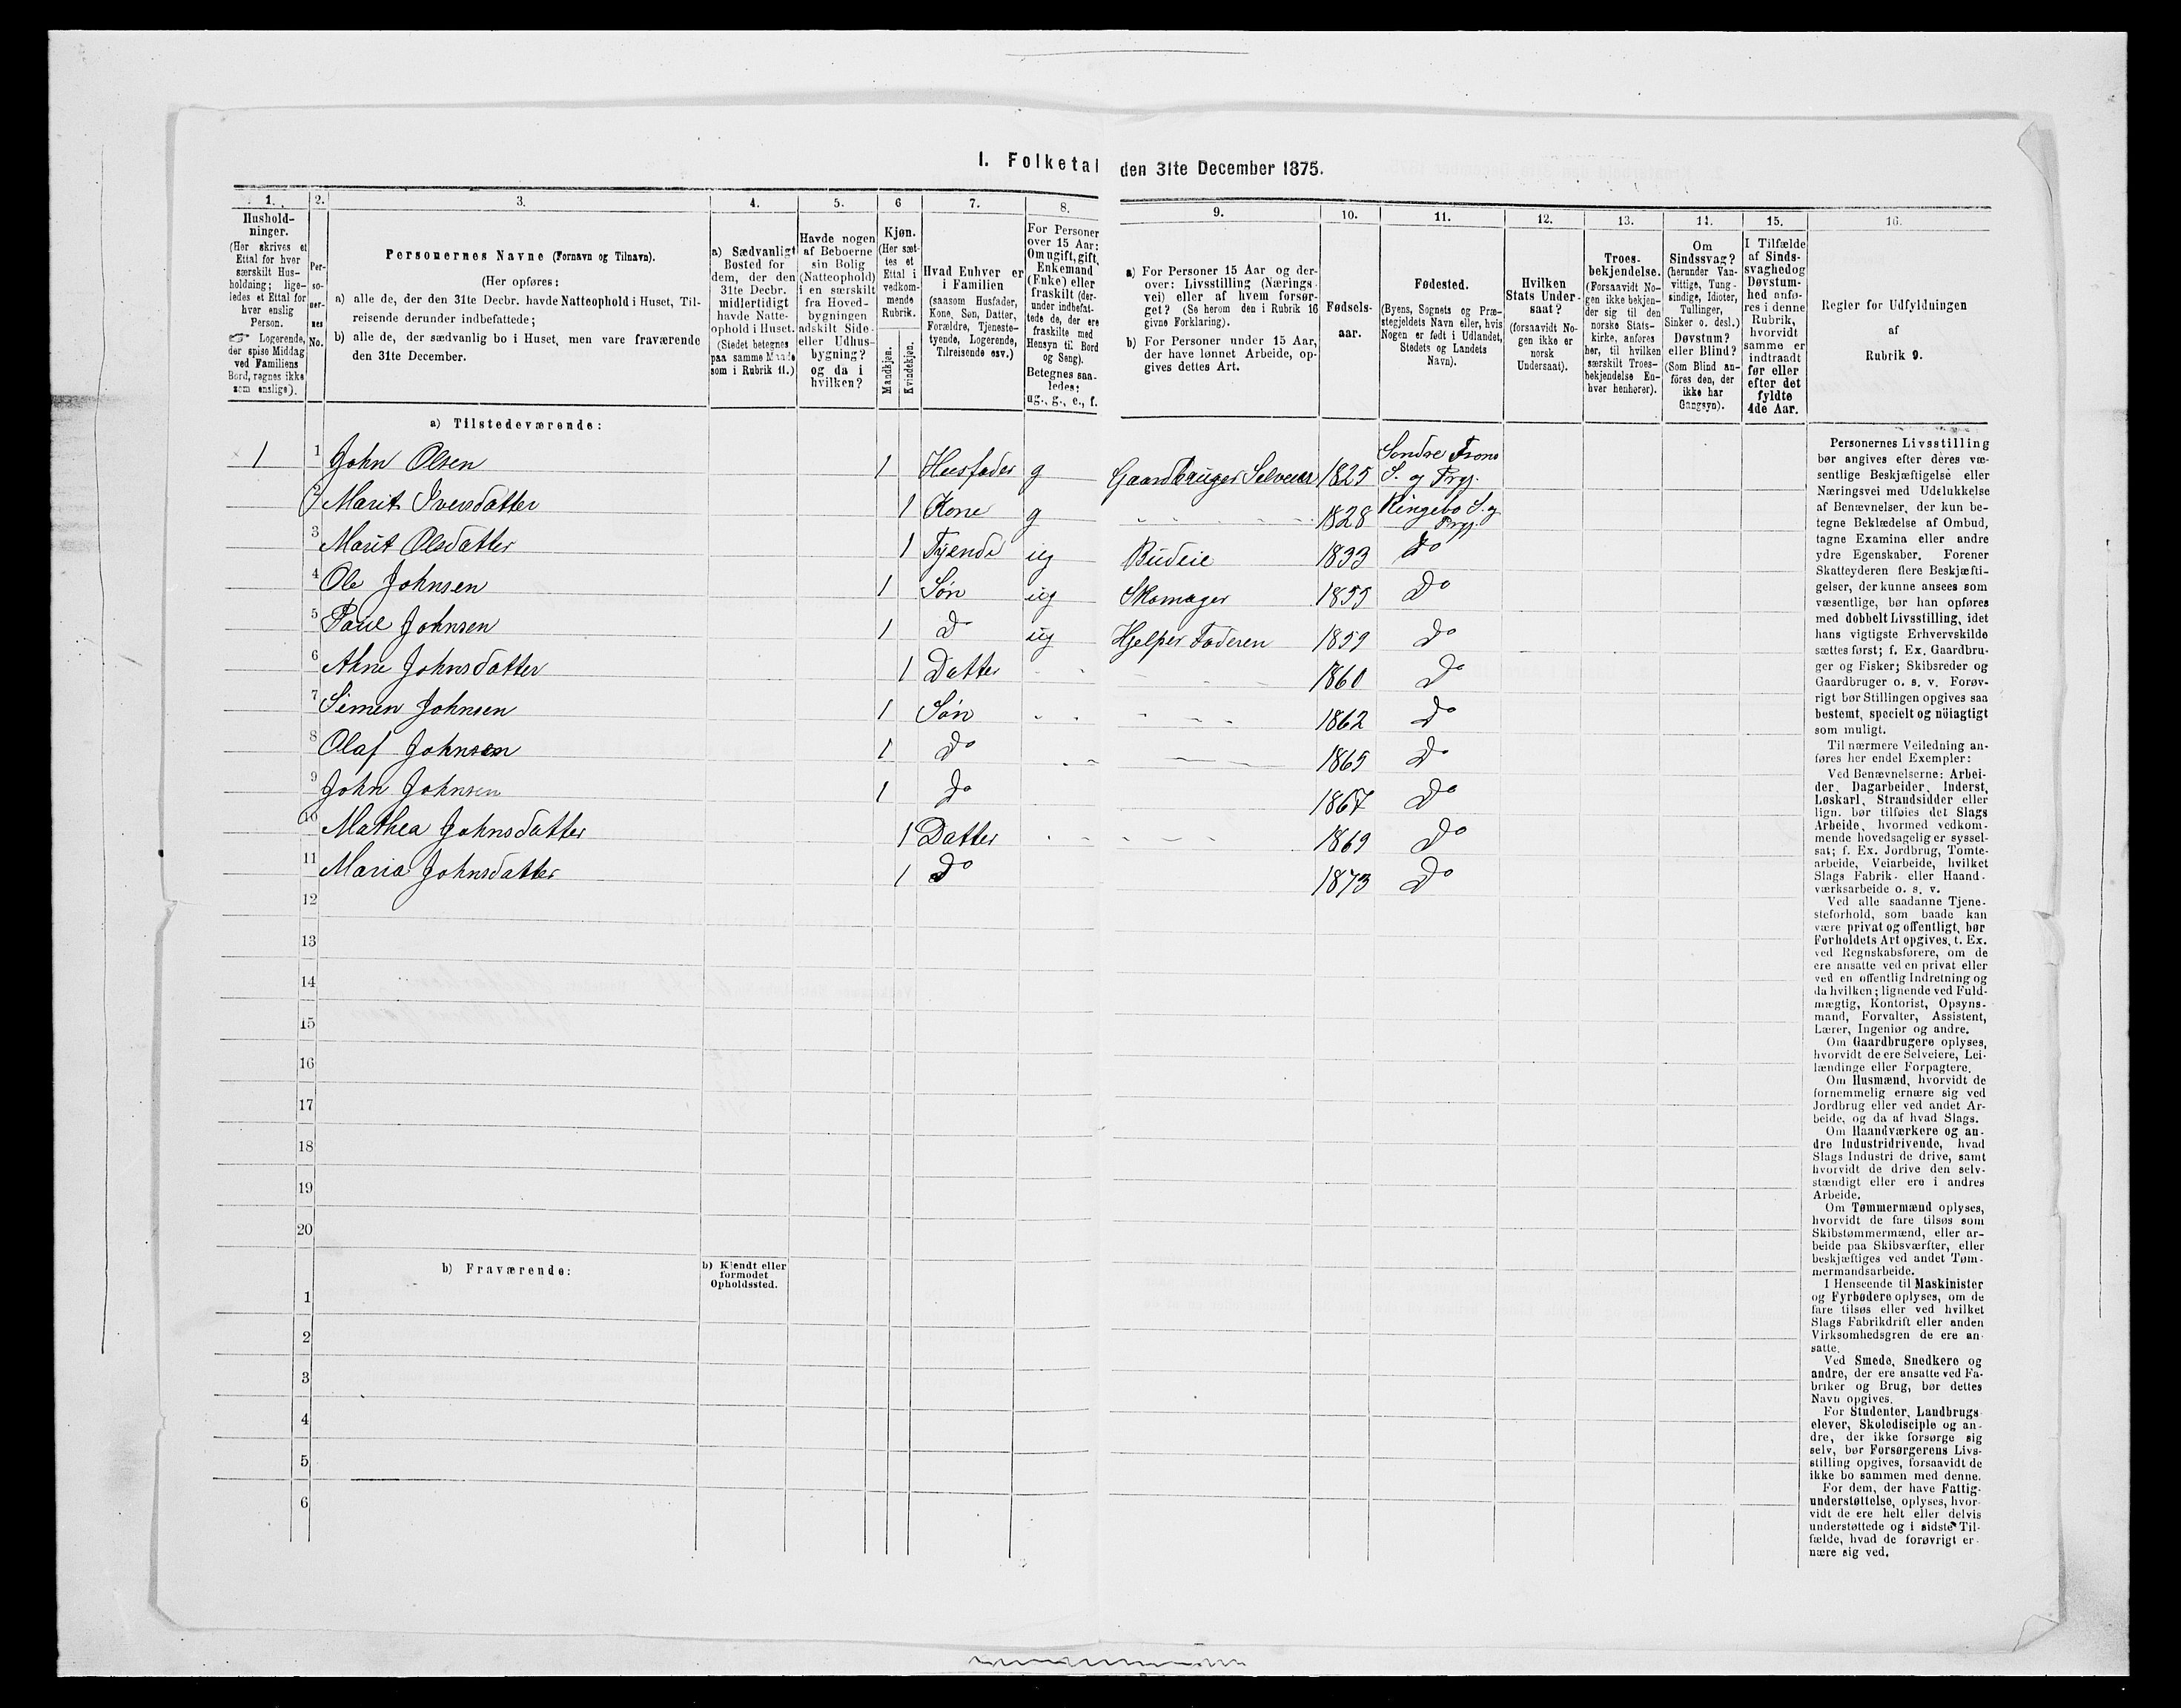 I. Folketal den 31te December 1875.
1. 2. 3. 4. 5. 6 7. 8. 9. 10. 11. 12. 13. 14. 15. 16.
Hushold-
ninger.
(Her skrives et
Ettal for hver
særskilt Hus-
holdning; lige-
ledes et Ettal for
hver enslig
Person.
☞ Logerende,
der spise Middag
ved Familiens
Bord, regnes ikke
som enslige).
Per-
so-
ner-
nes
No.
Personernes Navne (Fornavn og Tilnavn).
(Her opføres:
a) alle de, der den 31te Decbr. havde Natteophold i Huset, Til-
reisende derunder indbefattede;
b) alle de, der sædvanlig bo i Huset, men vare fraværende
den 31te December.
a) Sædvanligt
Bosted for
dem, der den
31te Decbr.
midlertidigt
havde Natte-
ophold i Huset.
(Stedet betegnes
paa samme Maade
som i Rubrik 11.)
Havde nogen
af Beboerne
sin Bolig
(Natteophold)
i en særskilt
fra Hoved-
bygningen
adskilt Side-
eller Udhus-
bygning?
og da i
hvilken?
Kjøn.
(Her sæt-
tes et
Ettal i
vedkom-
mende
Rubrik.
Mandkjøn.
Kvindekjøn.
Hvad Enhver er
i Familien
(saasom Husfader,
Kone, Søn, Datter,
Forældre, Tjeneste-
tyende, Logerende,
Tilreisende osv.)
For Personer
over 15 Aar:
Om ugift, gift,
Enkemand
(Enke) eller
fraskilt (der-
under indbefat-
tede de, der ere
fraskilte med
Hensyn til Bord
og Seng).
Betegnes saa-
ledes:
ug., g., e., f.
a) For Personer 15 Aar og der-
over: Livsstilling (Nærings-
vei) eller af hvem forsør-
get? (Se herom den i Rubrik 16
givne Forklaring).
b) For Personer under 15 Aar,
der have lønnet Arbeide, op-
gives dettes Art.
Fødsels-
aar.
Fødested.
(Byens, Sognets og Præ-
stegjeldets Navn eller, hvis
Nogen er født i Udlandet,
Stedets og Landets
Navn).
Hvilken
Stats Under-
saat?
(forsaavidt No-
gen ikke er
norsk
Undersaat).
Troes-
bekjendelse.
(Forsaavidt No-
gen ikke bekjen-
der sig til den
norske Stats-
kirke, anføres
her, til hvilken
særskilt Troes-
bekjendelse En-
hver henhører).
Om
Sindssvag?
(herunder Van-
vittige, Tung-
sindige, Idioter,
Tullinger,
Sinker o. desl.)
Døvstum?
eller Blind?
(Som Blind an-
føres den, der
ikke har
Gangsyn).
I Tilfælde
af Sinds-
svaghed og
Døvstum-
hed anfø-
res i denne
Rubrik,
hvorvidt
samme er
indtraadt
før eller
efter det
fyldte
4de Aar.
Regler for Udfyldningen
af
Rubrik 9.
a) Tilstedeværende:
1 1 John Olsen 1 Husfader g Gaardbruger Selveier 1825 Søndre Frons S. og Prgj.
2 Marit Iversdatter 1 Kone g 1828 Ringebo S. og Prgj.
3 Marit Olsdatter 1 Tjende ug Budeie 1833 Do
4 Ole Johnsen 1 Søn ug Skomager 1855 Do
5 Paul Johnsen 1 Do ug Hjelper Faderen 1859 Do
6 Ahne Johnsdatter 1 Datter 1860 Do
7 Simen Johnsen 1 Søn 1862 Do
8 Olaf Johnsen 1 Do 1865 Do
9 John Johnsen 1 Do 1867 Do
10 Mathea Johnsdatter 1 Datter 1869 Do
11 Maria Johnsdatter 1 Do 1873 Do
12
13
14
15
16
17
18
19
20
b) Fraværende:
b) Kjendt eller
formodet
Opholdssted.
1
2
3
4
5
6
Personernes Livsstilling
bør angives efter deres væ-
sentlige Beskjæftigelse eller
Næringsvei med Udelukkelse
af Benævnelser, der kun be-
tegne Beklædelse af Ombud,
tagne Examina eller andre
ydre Egenskaber. Forener
Skatteyderen flere Beskjæfti-
gelser, der kunne ansees som
væsentlige, bør han opføres
med dobbelt Livsstilling, idet
hans vigtigste Erhvervskilde
sættes først; f. Ex. Gaardbru-
ger og Fisker; Skibsreder og
Gaardbruger o. s. v. Forøv-
rigt bør Stillingen opgives saa
bestemt, specielt og nöiagtigt
som muligt.
Til nærmere Veiledning an-
føres her endel Exempler:
Ved Benævnelserne: Arbei-
der, Dagarbeider, Inderst,
Løskarl, Strandsidder eller
lign. bør tilføies det Slags
Arbeide, hvormed vedkom-
mende hovedsagelig er syssel-
sat; f. Ex. Jordbrug, Tomte-
arbeide, Veiarbeide, hvilket
Slags Fabrik- eller Haand-
værksarbeide o. s. v.
Ved alle saadanne Tjene-
steforhold, som baade kan
være privat og offentligt, bør
Forholdets Art opgives, t. Ex.
ved Regnskabsførere, om de
ere ansatte ved en privat eller
ved en offentlig Indretning og
da hvilken; lignende ved Fuld-
mægtig, Kontorist, Opsyns-
mand, Forvalter, Assistent,
Lærer, Ingeniør og andre.
Om Gaardbrugere oplyses,
hvorvidt de ere Selveiere, Lei-
lændinge eller Forpagtere.
Om Husmænd, hvorvidt de
fornemmelig ernære sig ved
Jordbrug eller ved andet Ar-
beide, og da af hvad Slags.
Om Haandværkere og an-
dre Industridrivende, hvad
Slags Industri de drive, samt
hvorvidt de drive den selv-
stændigt eller ere i andres
Arbeide.
Om Tømmermænd oplyses,
hvorvidt de fare tilsøs som
Skibstømmermænd, eller ar-
beide paa Skibsværfter, eller
beskjæftiges ved andet Tøm-
mermandsarbeide.
I Henseende til Maskinister
og Fyrbødere oplyses, om de
fare tilsøs eller ved hvilket
Slags Fabrikdrift eller anden
Virksomhedsgren de ere an-
satte.
Ved Smede, Snedkere og
andre, der ere ansatte ved Fa-
briker og Brug, bør dettes
Navn opgives.
For Studenter, Landbrugs-
elever, Skoledisciple og an-
dre, der ikke forsørge sig
selv, bør Forsørgerens Livs-
stilling opgives, forsaavidt de
ikke bo sammen med denne.
For dem, der have Fattig-
understøttelse, oplyses, hvor-
vidt de ere helt eller delvis
understøttede og i sidste Til-
fælde, hvad de forøvrigt er-
nære sig ved.